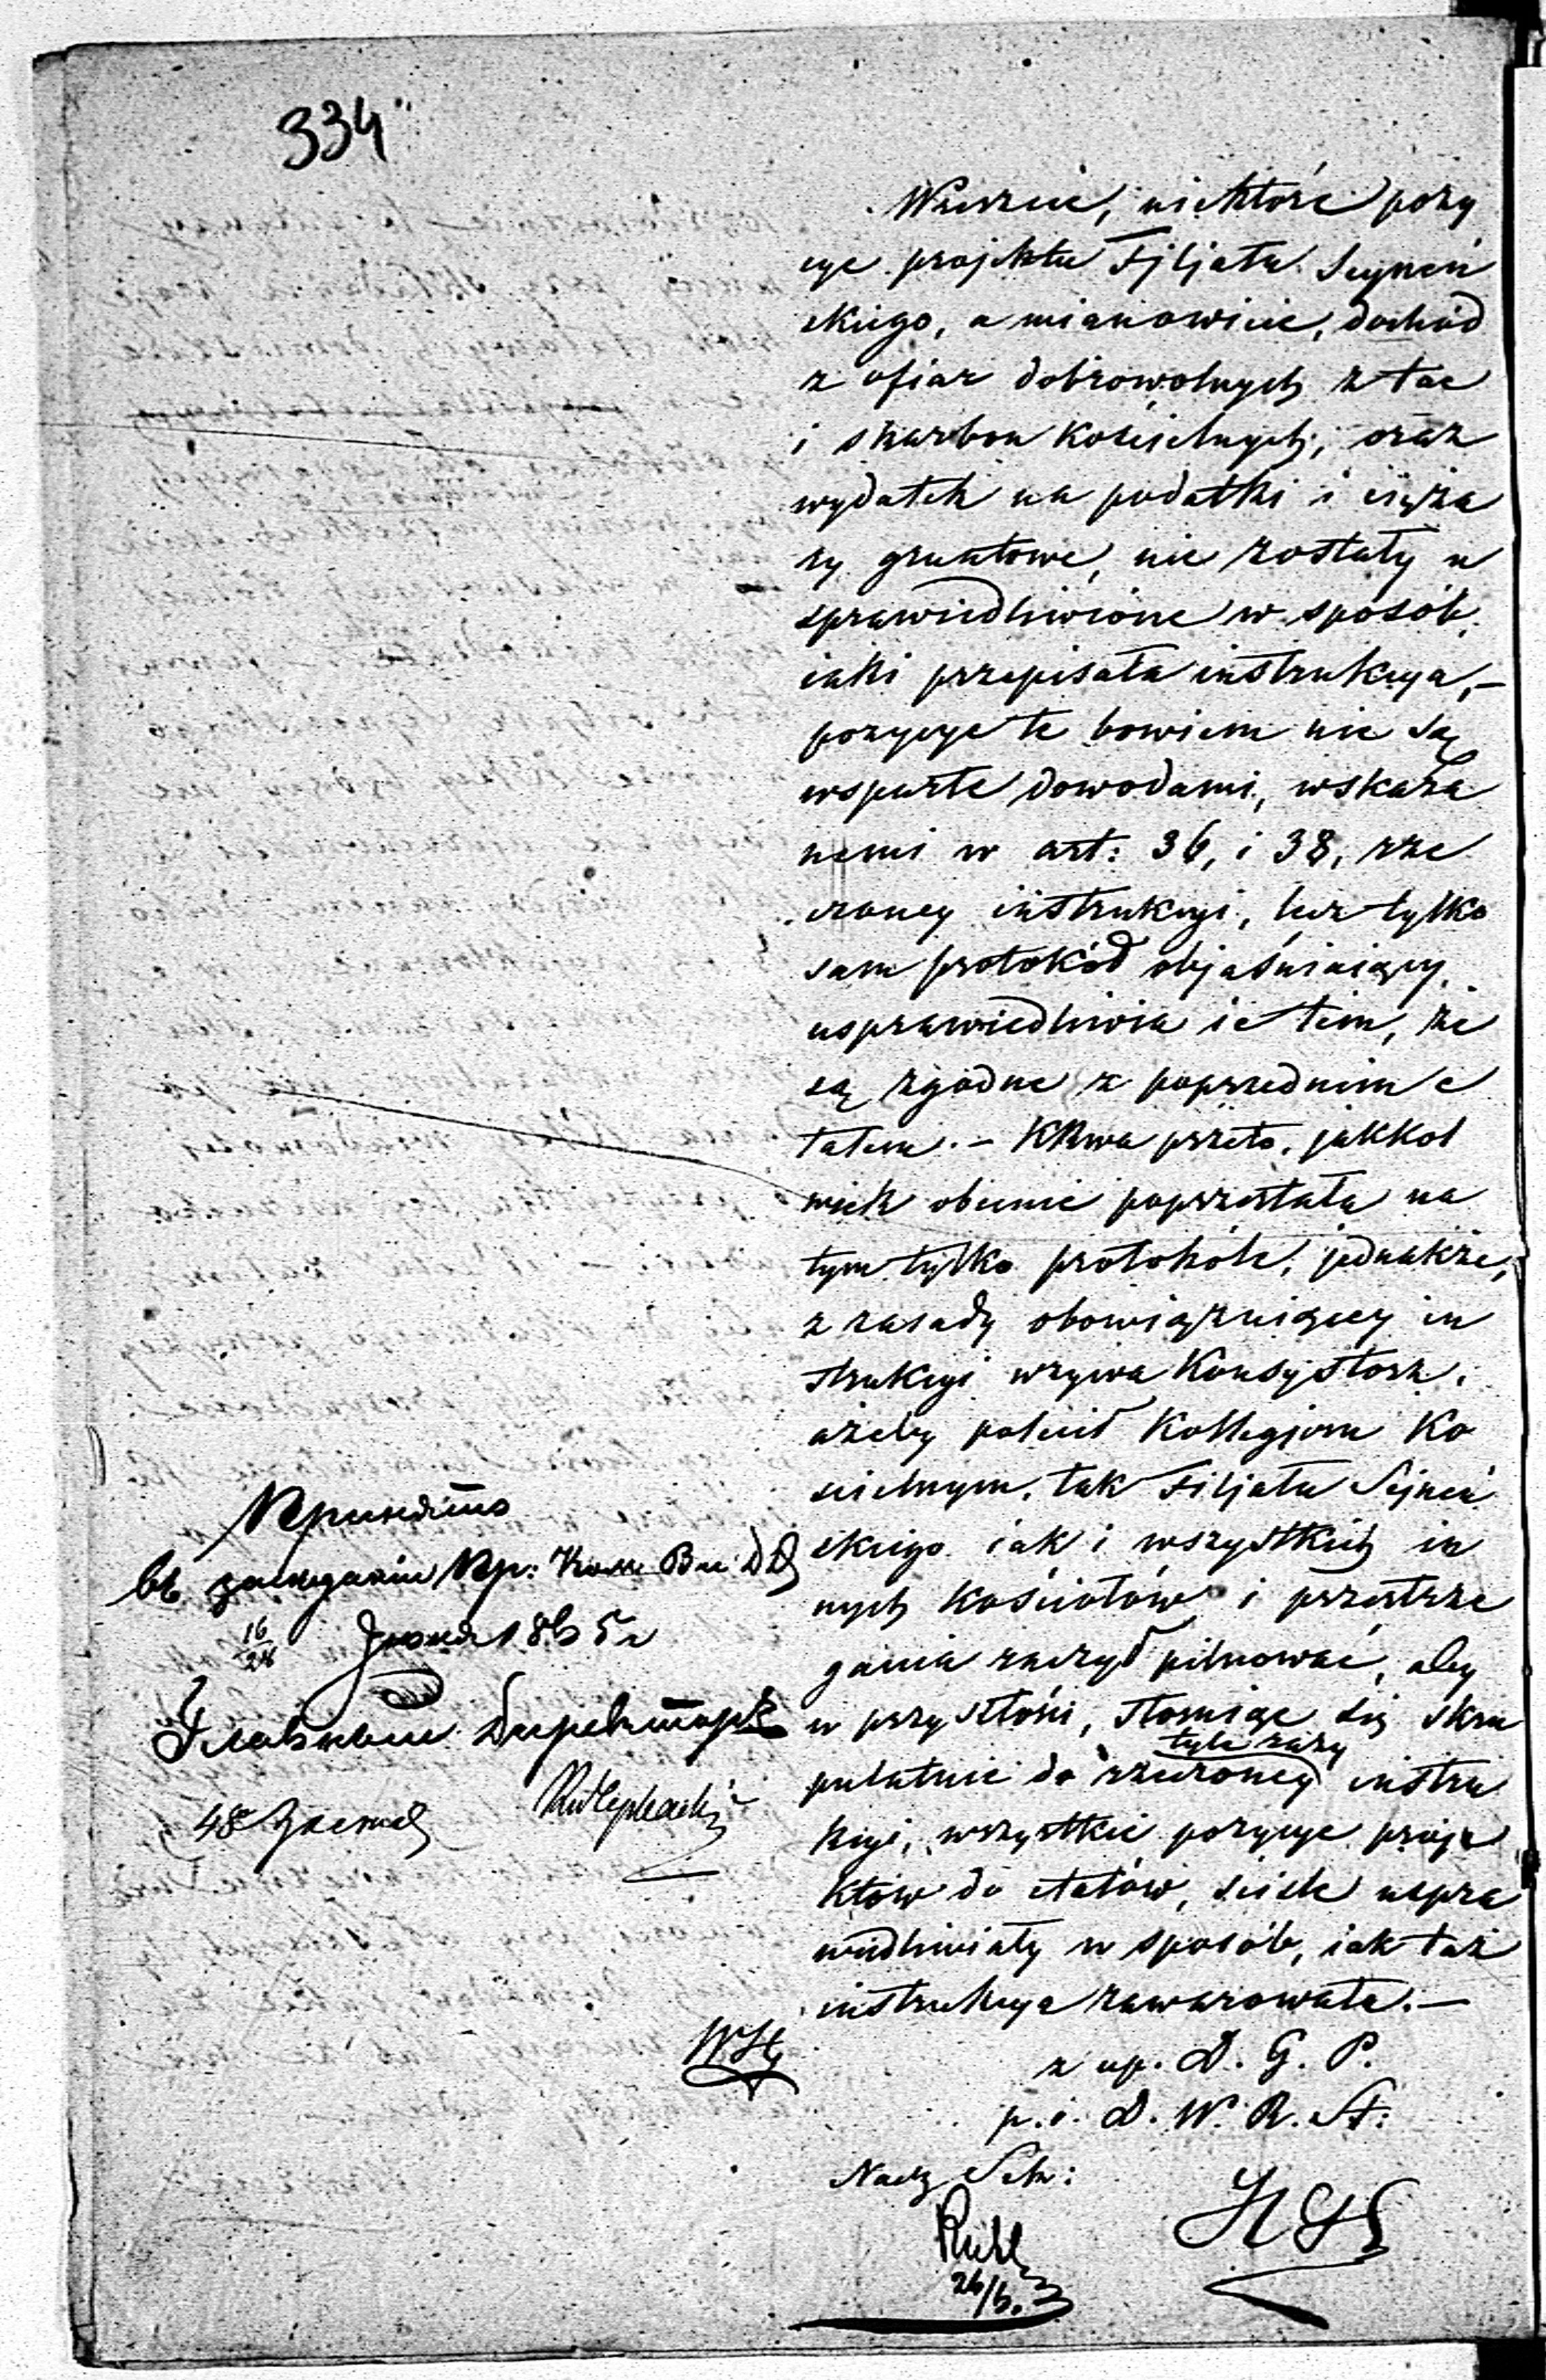 334
Wreszcie, niektóre pozy
cye projektu Filjału Seyneń
skiego, a mianowicie, dochód
z ofiar dobrowolnych z tac
i skarbon kościelnych, oraz
wydatek na podatki i cięża
ry gruntowe, nie zostały u
sprawiedliwione w sposób,
iaki przepisała instrukcya,—
pozycye te bowiem nie są
wsparte dowodami, wskaza
nemi w art: 36, i 38, rze
czoney instrukcyi, lecz tylko
sam protokół objaśniaiący,
usprawiedliwia ie tem, że
są zgodne z poprzednim e
tatem.— KRwa przeto, jakkol
wiek obecnie poprzestała na
tym tylko protokóle, jednakże,
z zasady obowiązuiącey in
strukcyi wzywa Konsystorz,
ażeby polecił Kollegjom Ko
ścielnym, tak Filjału Sejneń
skiego iak i wszystkich in
nych kościołów i przestrze
gania raczył pilnować, aby
w przyszłości, stosuiąc się skru
pulatnie do tyle razy rzeczoney instru
kcyi, wszystkie pozycye proje
któw do etatów, ściśle uspra
wiedliwiały w sposób, iak taż
instrukcya zawarowała.—
z up. D. G. P.
p. o. D. W. R. St:
Nacz Sek:
26/6.
въ заседании Пр: Ком: Вн: Д Д
16/28 Июня 1865 г
Главный Директоръ